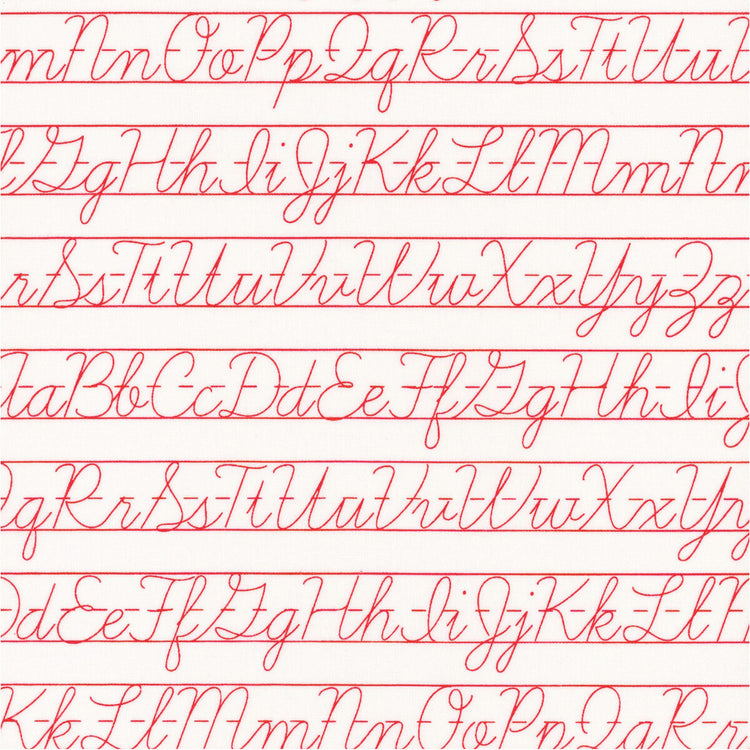 mNnOoPpQqRrSsTtUu
GgHhIiJjKkLlMmNn
rSsTtUuVvWwXxYyZz
aBbCcDdEeFfGgHhIi
qRrSsTtUuVvWwXxYy
DdEeFfGgHhIiJjKkLl
KkLlMmNnOoPpQqRr